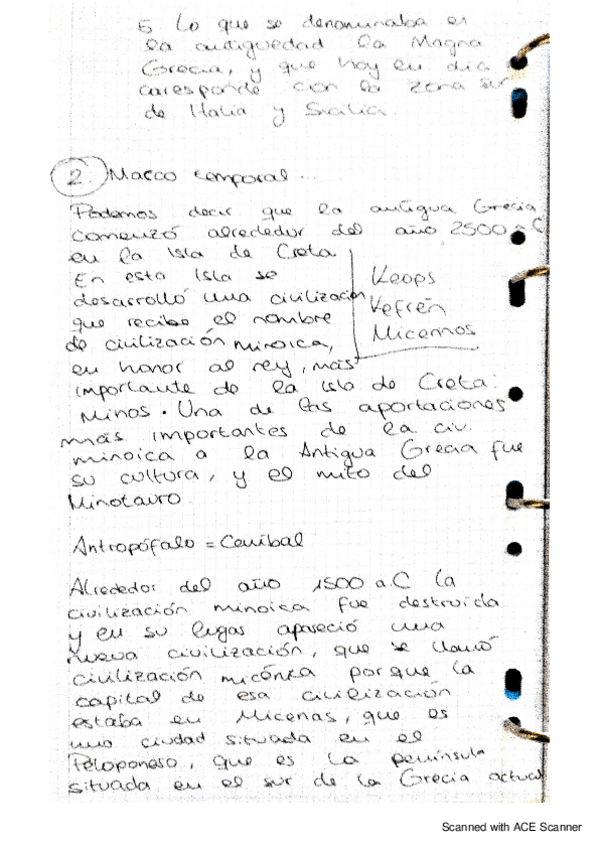 5. Lo que se denominaba en
la antiguedad la Magna
Grecia, y que hoy en día
corresponde con la zona sur
de Italia y Sicilia.
2. Marco temporal...
Podemos decir que la antigua Grecia
comenzó alrededor del año 2500 a.C
en la Isla de Creta.
En esta Isla se
desarrolló una civilización
que recibe el nombre
de civilización minoica,
en honor al rey, más
importante de la isla de Creta:
Minos. Una de las aportaciones
más importantes de la civ.
minoica a la Antigua Grecia fue
su cultura, y el mito del
Minotauro.
Keops
Kefrén
Micennos
Antropófalo = Caníbal
Alrededor del año 1500 a.C la
civilización minoica fue destruida
y en su lugar apareció una
nueva civilización, que se llamó
civilización micénica porque la
capital de esa civilización
estaba en Micenas, que es
una ciudad situada en el
Peloponeso, que es la península
situada en el sur de la Grecia actual
Scanned with ACE Scanner